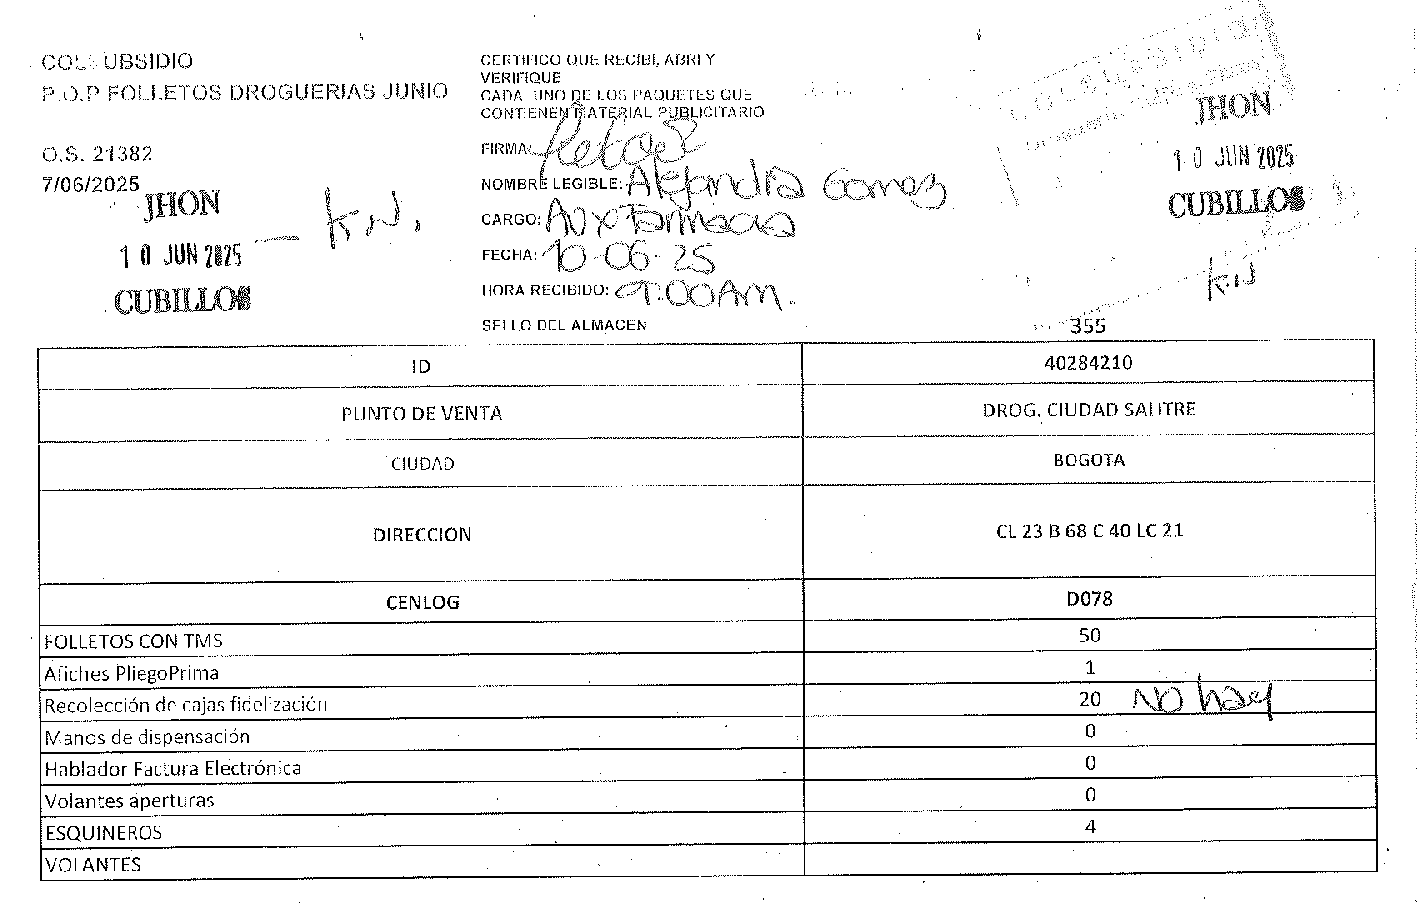 COLSUBSIDIO
P.O.P FOLLETOS DROGUERIAS JUNIO
O.S. 21382
7/06/2025
JHON
10 JUN 2025
CUBILLOS
K.N.
CERTIFICO QUE RECIBI, ABRI Y
VERIFIQUE
CADA UNO DE LOS PAQUETES QUE
CONTIENEN MATERIAL PUBLICITARIO
FIRMA:
NOMBRE LEGIBLE: Alejandra Gomez
CARGO: Aux Farmacia
FECHA: 10-06-25
HORA RECIBIDO: 9:00AM.
SELLO DEL ALMACEN
COLSUBSIDIO
JHON
10 JUN 2025
CUBILLOS
K.N
355
ID 40284210
PUNTO DE VENTA DROG. CIUDAD SALITRE
CIUDAD BOGOTA
DIRECCION CL 23 B 68 C 40 LC 21
CENLOG D078
FOLLETOS CON TMS 50
Afiches PliegoPrima 1
Recolección de cajas fidelización 20 NO hay
Manos de dispensación 0
Hablador Factura Electrónica 0
Volantes aperturas 0
ESQUINEROS 4
VOLANTES